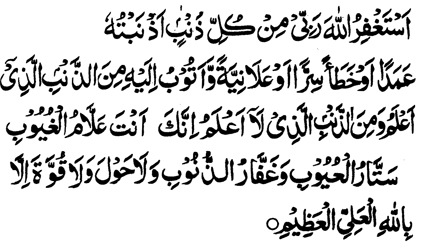 اَسْتَغْفِرُ اللهَ رَبِّىْ مِنْ كُلِّ ذَنْۢبٍ اَذْنَبْتُهٗ
عَمَدًا اَوْ خَطَأً سِرًّا اَوْ عَلَانِيَةً وَّاَتُوْبُ اِلَيْهِ مِنَ الذَّنْۢبِ الَّذِىْٓ
اَعْلَمُ وَمِنَ الذَّنْۢبِ الَّذِىْ لَآ اَعْلَمُ اِنَّكَ اَنْتَ عَلَّامُ الْغُيُوْبِ
سَتَّارُ الْعُيُوْبِ وَغَفَّارُ الذُّنُوْبِ وَلَا حَوْلَ وَلَا قُوَّةَ اِلَّا
بِاللهِ الْعَلِىِّ الْعَظِيْمِ○